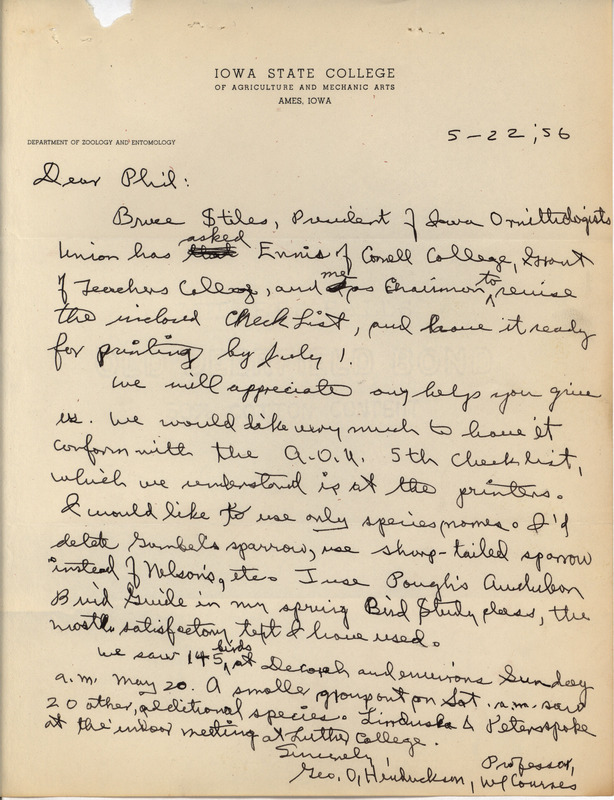 IOWA STATE COLLEGE
OF AGRICULTURE AND MECHANIC ARTS
AMES, IOWA
DEPARTMENT OF ZOOLOGY AND ENTOMOLOGY
5-22, 56
Dear Phil:
Bruce Stiles, President of Iowa Ornithologists
Union has asked Ennis of Conell College, Grant
of Teachers College, and me as Chairman to revise
the inclosed Check List, and have it ready
for printing by July 1.
We will appreciate any helps you give
us. We would like very much to have it
conform with the A.O.U. 5th Checklist,
which we understand is at the printers.
I would like to use only species names. I'd
delete Gambel's sparrow, use sharp-tailed sparrow
instead of Nelson's, etc. I use Pough's Audubon
Bird Guide in my spring Bird Study class, the
most satisfactory text I have used.
We saw 145 birds at Decorah and environs Sunday
a.m. May 20. A smaller group out on Sat. a.m. saw
20 other, additional species. Linduska & Peters spoke
at the indoor meeting at Luther College.
Sincerely,
Geo. O. Hendrickson, Professor,
WL Courses